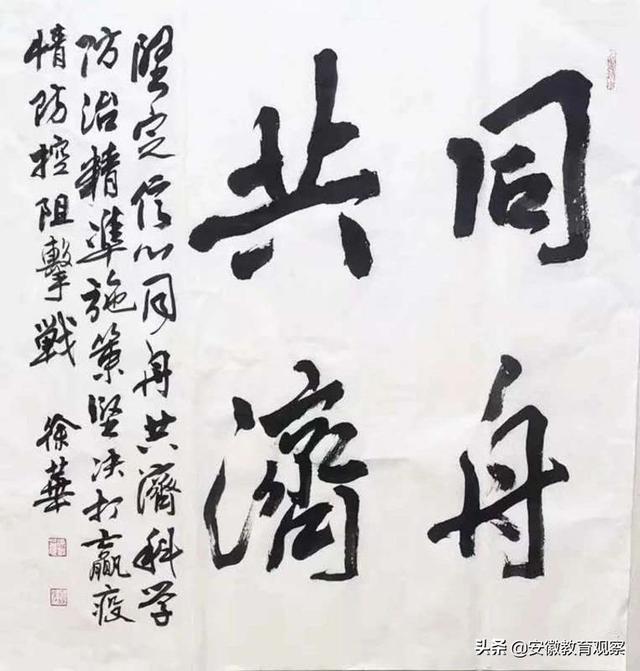 同舟
共濟
堅定信心同舟共濟科学
防治精準施策堅决打贏疫
情防控阻擊戦 徐華
头条 @安徽教育观察